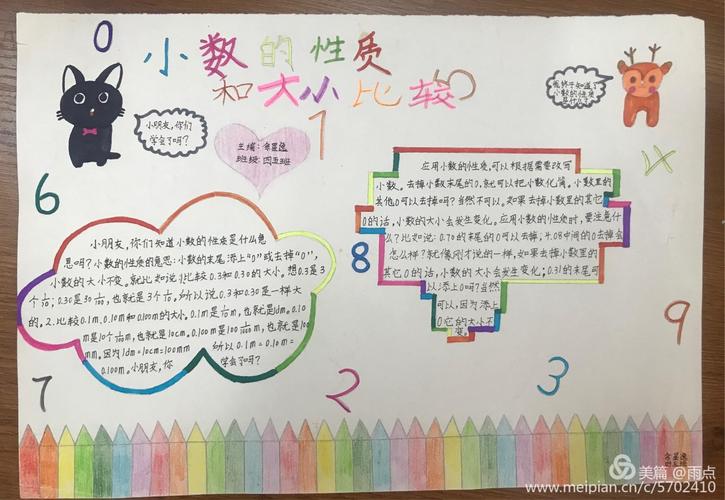 0
小数的性质
和大小比较
小朋友,你们
学会了吗?
我终于知道了
小数的性质
是什么!
主编:余星逸
班级:四五班
1
4
6
小朋友,你们知道小数的性质是什么意
思吗?小数的性质的意思:小数的末尾添上“0”或去掉“0”,
小数的大小不变。就比如说:1.比较0.3和0.30的大小。想0.3是3
个1/10;0.30是30个1/100,也就是3个1/10。所以说0.3和0.30是一样大
的。2.比较0.1m、0.10m和0.100m的大小。0.1m是1/10m,也就是1dm。0.10
m是10个1/100m,也就是10cm。0.100m是100个1/1000m,也就是100
mm。因为1dm=10cm=100mm 所以0.1m=0.10m=
0.100m。小朋友,你 学会了吗?
8
应用小数的性质,可以根据需要改写
小数。去掉小数末尾的0,就可以把小数化简。小数里的
其他0可以去掉吗?当然不可以。如果去掉小数里的其它
0的话,小数的大小会发生变化。应用小数的性质时,要注意什
么?比如说:0.70的末尾的0可以去掉;4.08中间的0去掉会
怎么样?就像刚才说的一样,如果去掉小数里的
其它0的话,小数的大小会发生变化;0.31的末尾可
以添上0吗?当然
可以,因为添上
0它的大小不
变。
9
7
2
3
美篇@雨点
www.meipian.cn/c/5702410